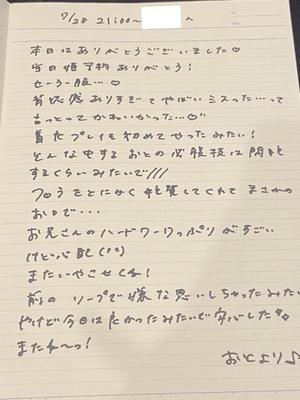 7/28 21:00〜 へ
本日はありがとうございました♡
当日姫予約ありがとう!
セーラー服…♡
背徳感ありすぎてやばいミスった…って
言っとってかわいかった…♡
着たプレイも初めてやったみたい!
そんな
するくらいみたいで///
フロうをとにかく してくれて まさかの
お口で・・・
お兄さんのハードワークっぷりがすごい
けど心配(°°)
またいやさせてね!
前の ソープで嫌な思いしちゃったみたい
やけど今日は良かったみたいで安心した
またね〜っ!
おとより♪